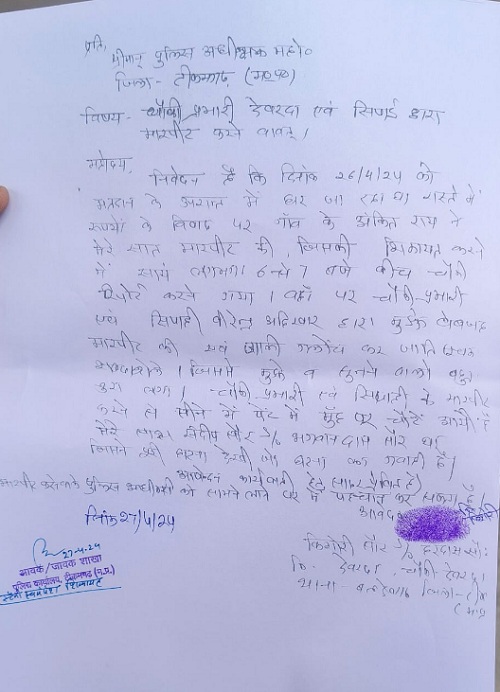 प्रति,
श्रीमान् पुलिस अधीक्षक महो०
जिला - टीकमगढ़, (म०प्र०)
विषय - चौकी प्रभारी देवरदा एवं सिपाई द्वारा
मारपीट करने बावत् ।
महोदय,
निवेदन है कि दिनांक 26/4/24 को
मतदान के उपरान्त मैं घर जा रहा था रास्ते में
रुपयों के विवाद पर गाँव के अंकित राय ने
मेरे साथ मारपीट की, जिसकी शिकायत करने
मैं सायं लगभग 6 से 7 बजे बीच चौकी
रिपोर्ट करने गया । वहाँ पर चौकी-प्रभारी
एवं सिपाही वीरेन्द्र अहिरवार द्वारा मुझे
मारपीट की एवं गाली गलौच कर जाति सूचक
जिससे मुझे व सुनने वालो बहुत
बुरा लगा । चौकी-प्रभारी एवं सिपाही के मारपीट
करने से सीने में पेट में मुँह पर चोटें आयी हैं
मेरे साथ संदीप सौर S/o भगवानदास सौर था
जिसने सभी घटना देखी जो घटना का गवाही है।
आवेदन कार्यवाही हेतु सादर प्रेषित है)
मारपीट करनेवाले पुलिस कर्मचारी को सामने लाने पर मैं पहचान कर सकता हूँ
दिनांक 27/4/24
आवेदक
27-4-24
किशोरी सौर S/o हरदास सौर
आवक/जावक शाखा
नि. देवरदा, चौकी देवरदा
पुलिस कार्यालय, टीकमगढ़ (म.प्र.)
थाना - बल्देवगढ़ जिला - टी
(म०प्र